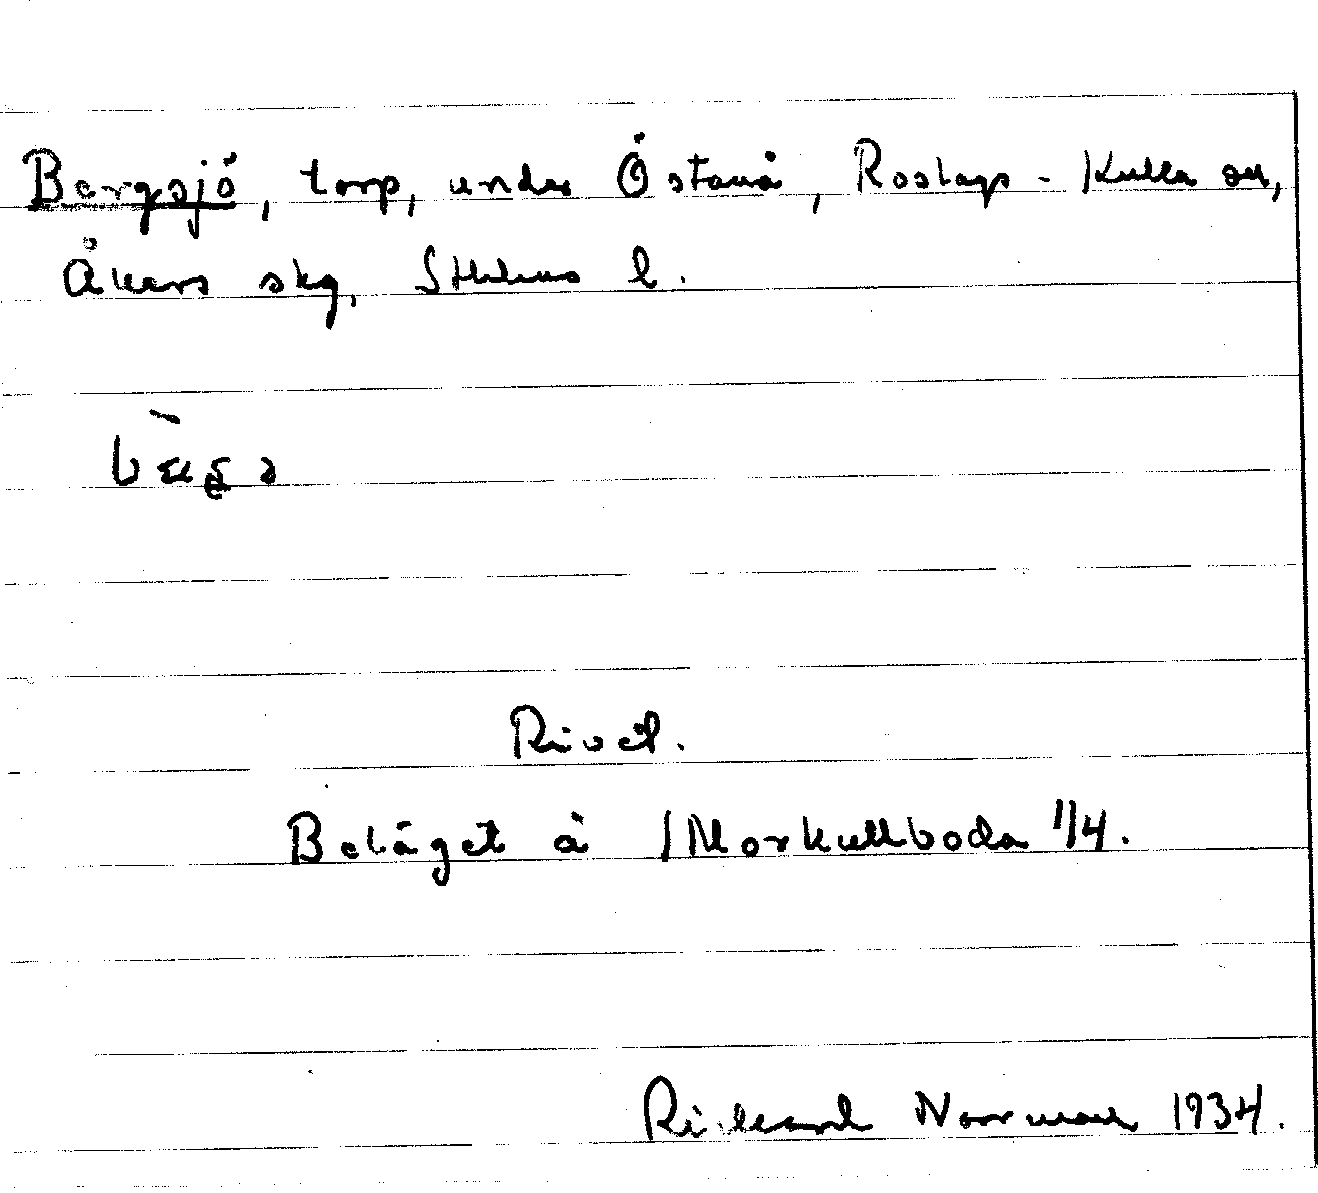 Bergsjö, torp, under Östanå, Roslags-Kulla sn,
Åkers skg, Sthlms l.
Rivet.
Beläget å /Morkullboda 1/4.
Richard Norrman 1934.